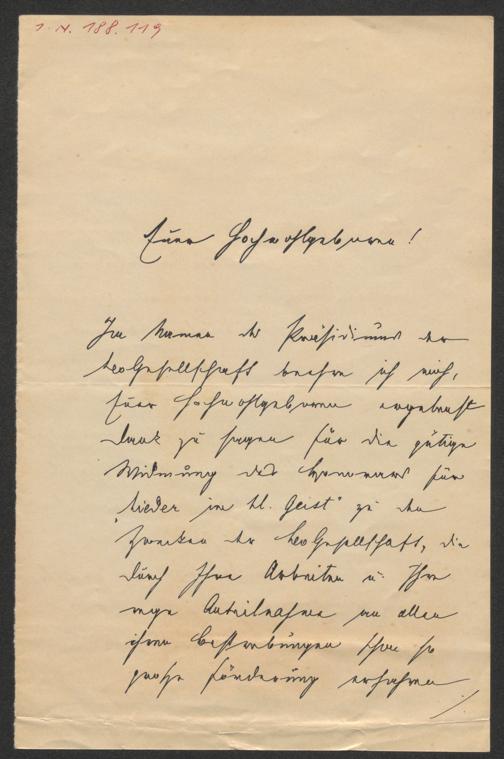 I. N. 188.119
Euer Hochwohlgeboren!
Im Namen des Präsidiums der
LeoGesellschaft beehre ich mich,
Euer Hochwohlgeboren ergebenst
Dank zu sagen für die gütige
Widmung des Honorars für
"Lieder im hl. Geist" zu den
Zwecken der LeoGesellschaft, die
durch Ihre Arbeiten u. Ihre
rege Anteilnahme an allen
ihren Bestrebungen schon so
große Förderung erfahren
/.